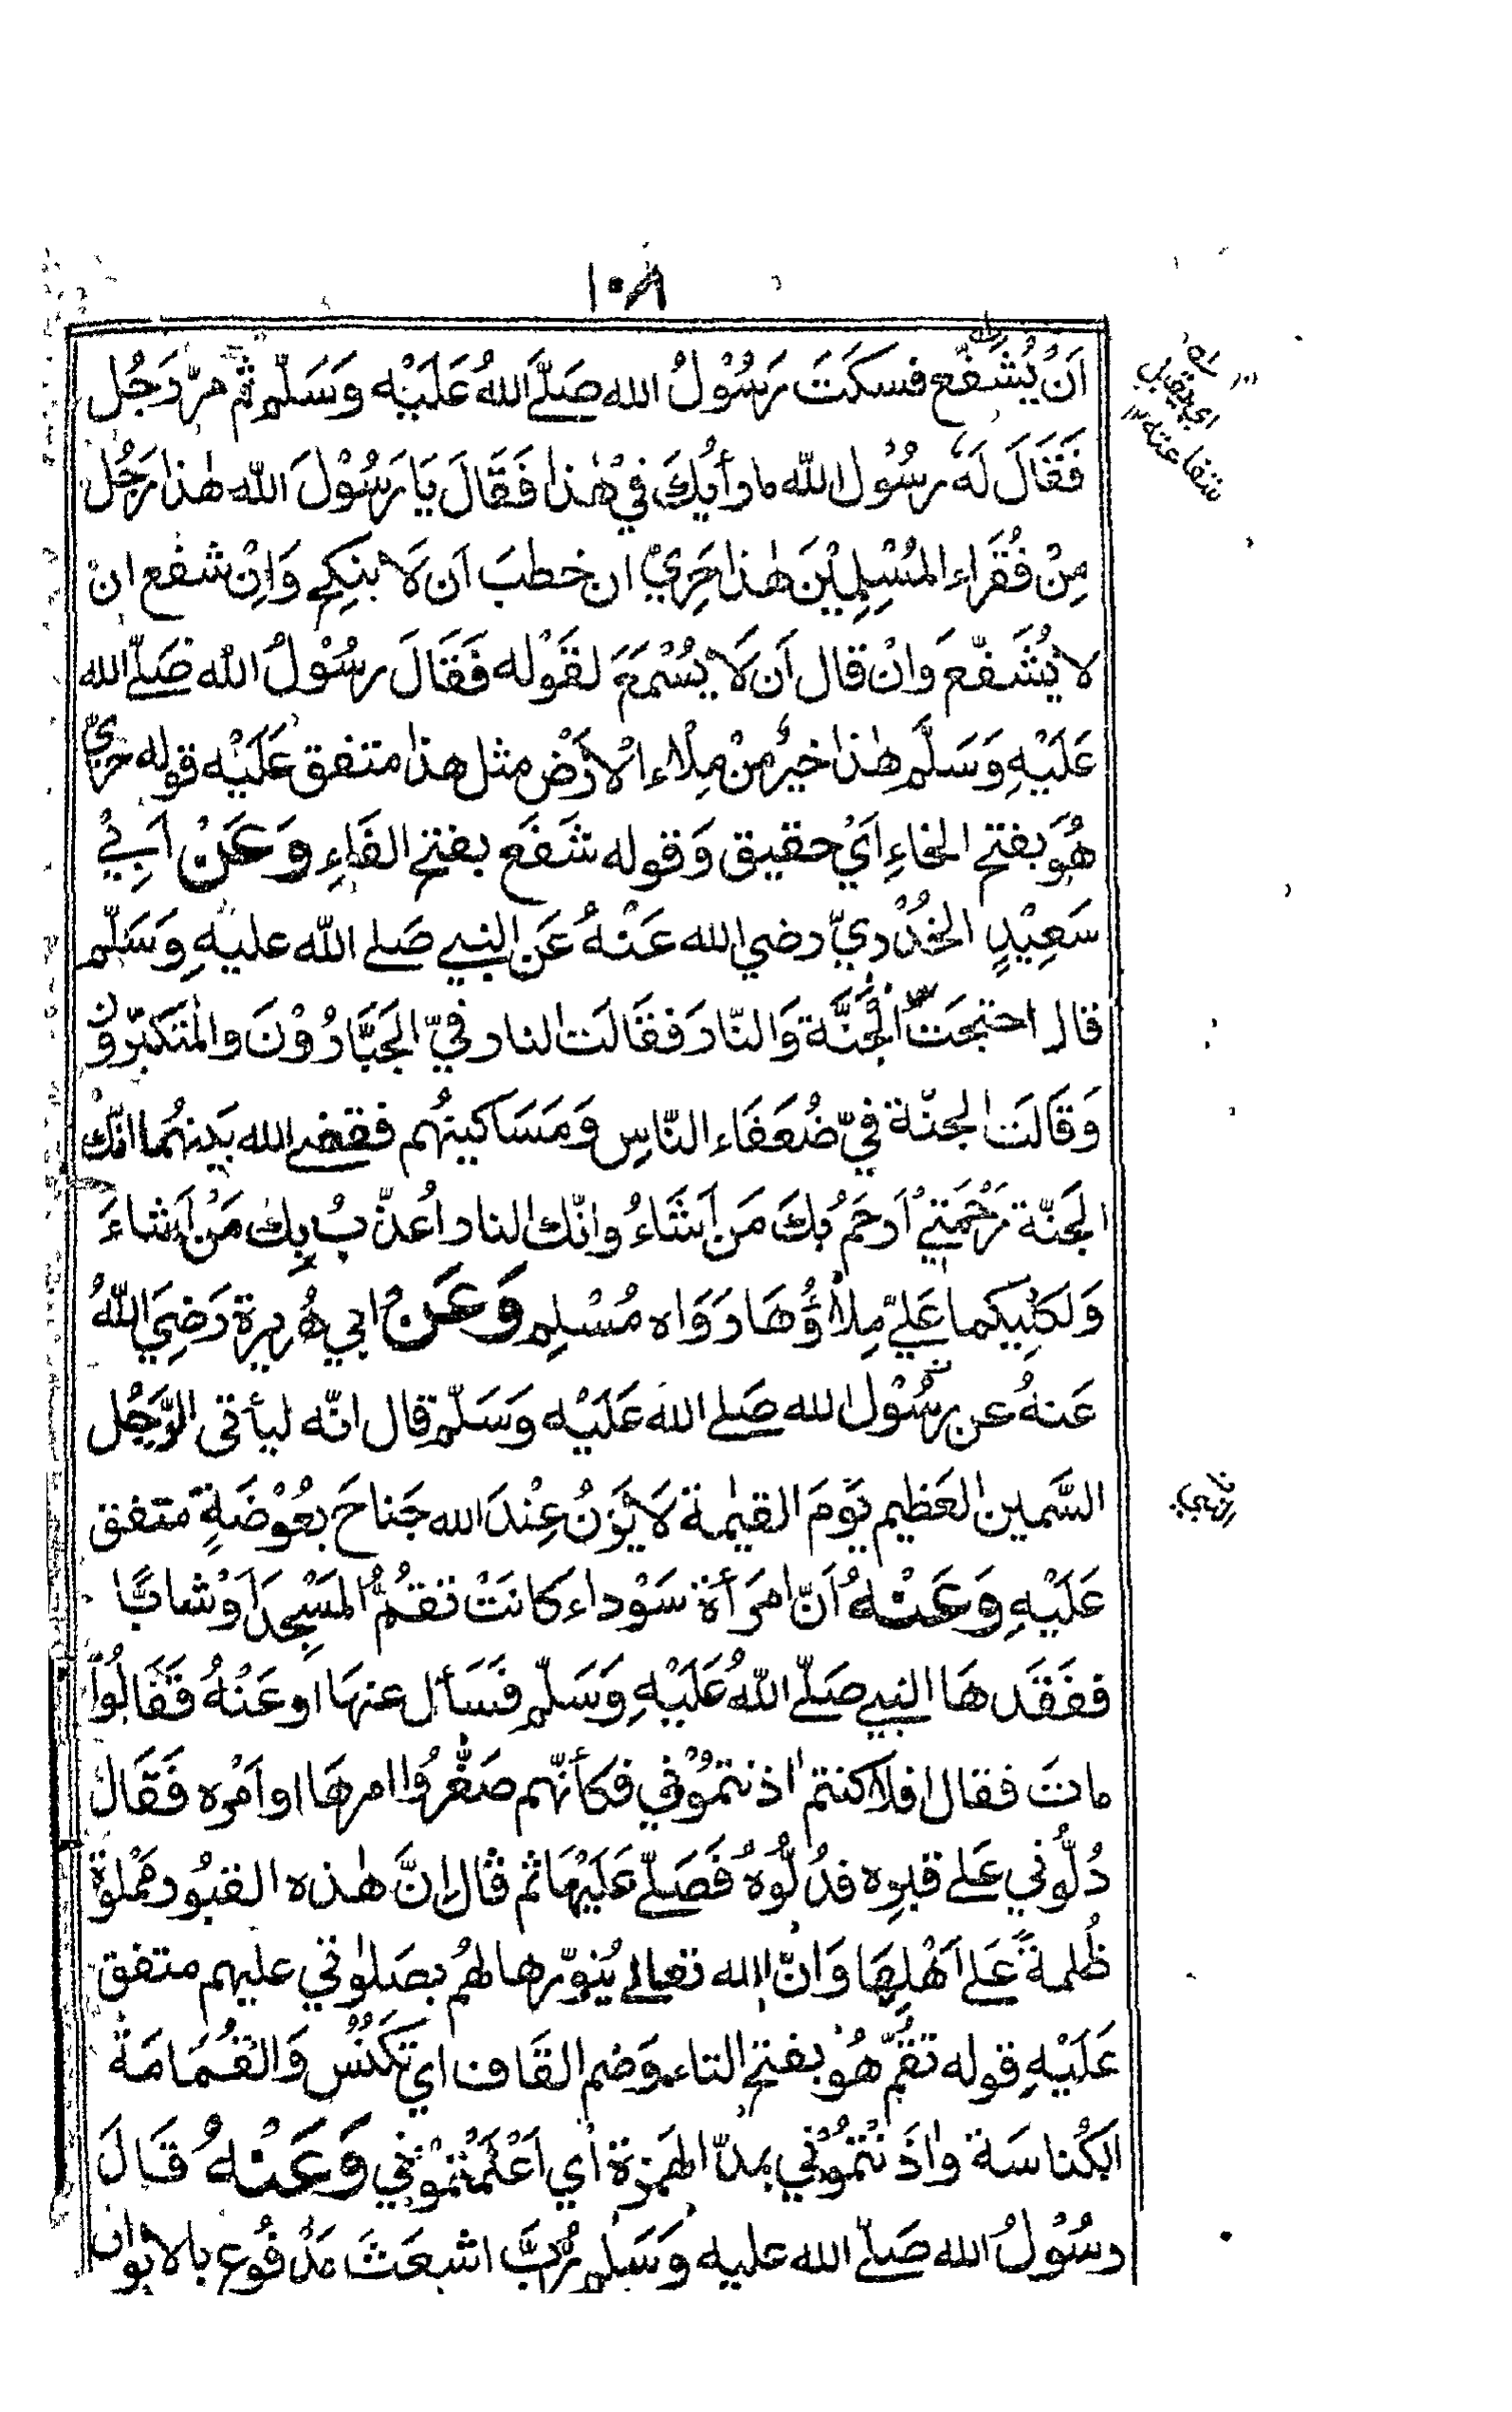 ١٠٨
اَنْ يُشَفَّع فسكَتَ رَسُوْلُ الله صَلَّى اللهُ عَلَيْه وَسَلّم ثم مرّ رَجُل
فَقَالَ لَهُ رسُوْل اللّه ما رأيُكَ فِيْ هٰذا فَقَالَ يَا رَسُوْلَ اللّه هٰذا رَجُل
مِنْ فُقَرَاءِ المُسْلِمِيْنَ هٰذا حَرِيٌّ ان خطبَ اَن لَا ينكح وَاِنْ شفع ان
لا يُشَفّعَ وَانْ قال اَن لَا يُسْمَعَ لقَوْله فَقَالَ رسُوْلُ الله صَلّى الله
عَلَيْهِ وَسَلَّم هٰذا خيرٌ مِنْ مِلْاءِ الْاَرْضِ مثل هذا متفق عَلَيْه قوله حرِيّ
هُوَ بفتح الحَاءِ اَيْ حقيق وَقوله شَفَع بفتح الفَاءِ وَعَنْ اَبِيْ
سَعِيْدٍ الخُدْرِيّ رضي الله عَنْهُ عَن النبي صَلى اللّه عليهِ وَسَلّم
قال احتجَتِ الْجَنَّة وَالنّار فقَالَت النار فِيّ الجَبَّارُوْنَ والمتكبّرون
وَقَالَت الجنّة فِيّ ضُعَفَاء النّاسِ وَمَسَاكينُهم فقضى الله بَينهُما انّك
الجَنّة رَحْمَتِيْ اَرحَمُ بكَ مَن اَشَاءُ وانّك النار اُعذّبُ بِك مَنْ اَشاءَ
وَلكليكما عَلَيّ مِلْاؤُهَا رَوَاه مُسْلِم وَعَنْ ابي هُريرة رَضِيَ اللّهُ
عَنهُ عن رسُوْل الله صَلى الله عَلَيْه وَسَلّم قال انّه ليأتى الرّجُل
السَّمين العَظيم يَوْمَ القيٰمة لَا يَزنُ عِنْدَ الله جَناحَ بعُوْضَةٍ متفق
عَلَيْهِ وَعَنْهُ اَنّ امرَأة سَوْداء كانَتْ تقُمُّ المَسْجِدَ اَوْ شابًّا
ففَقَدهَا النبي صَلّى اللّهُ عَلَيْهِ وَسَلّم فَسَأل عنهَا او عَنْهُ فَقَالُوا
ماتَ فقال افلا كنتم اذنتموْني فكأنّهم صَغّرُوا امرهَا او اَمْره فَقَالَ
دُلُّوني عَلى قبرِه فدُلُّوهُ فَصَلّى عَلَيْهَا ثم قال اِنَّ هٰذه القبُور مملوة
ظُلمةً عَلى اَهْلِهَا وَانّ الله تعالى يُنوّرها لهُم بصَلوٰتي عليهم متفق
عَلَيْهِ قوله تَقُمّ هُوَ بفتح التاء وَضم القَاف اي تَكنُسُ وَالقُمَامَة
الكُناسَة واٰذَنْتُمُوْني بمدّ الهَمزة اَي اَعْلَمْتُمُوْني وَعَنْهُ قَالَ
رسُوْلُ الله صَلّى الله عليه وَسَلم رُبَّ اشعَثَ مَدْفُوع بالابواب
اي يقبل
شفاعته ١٢